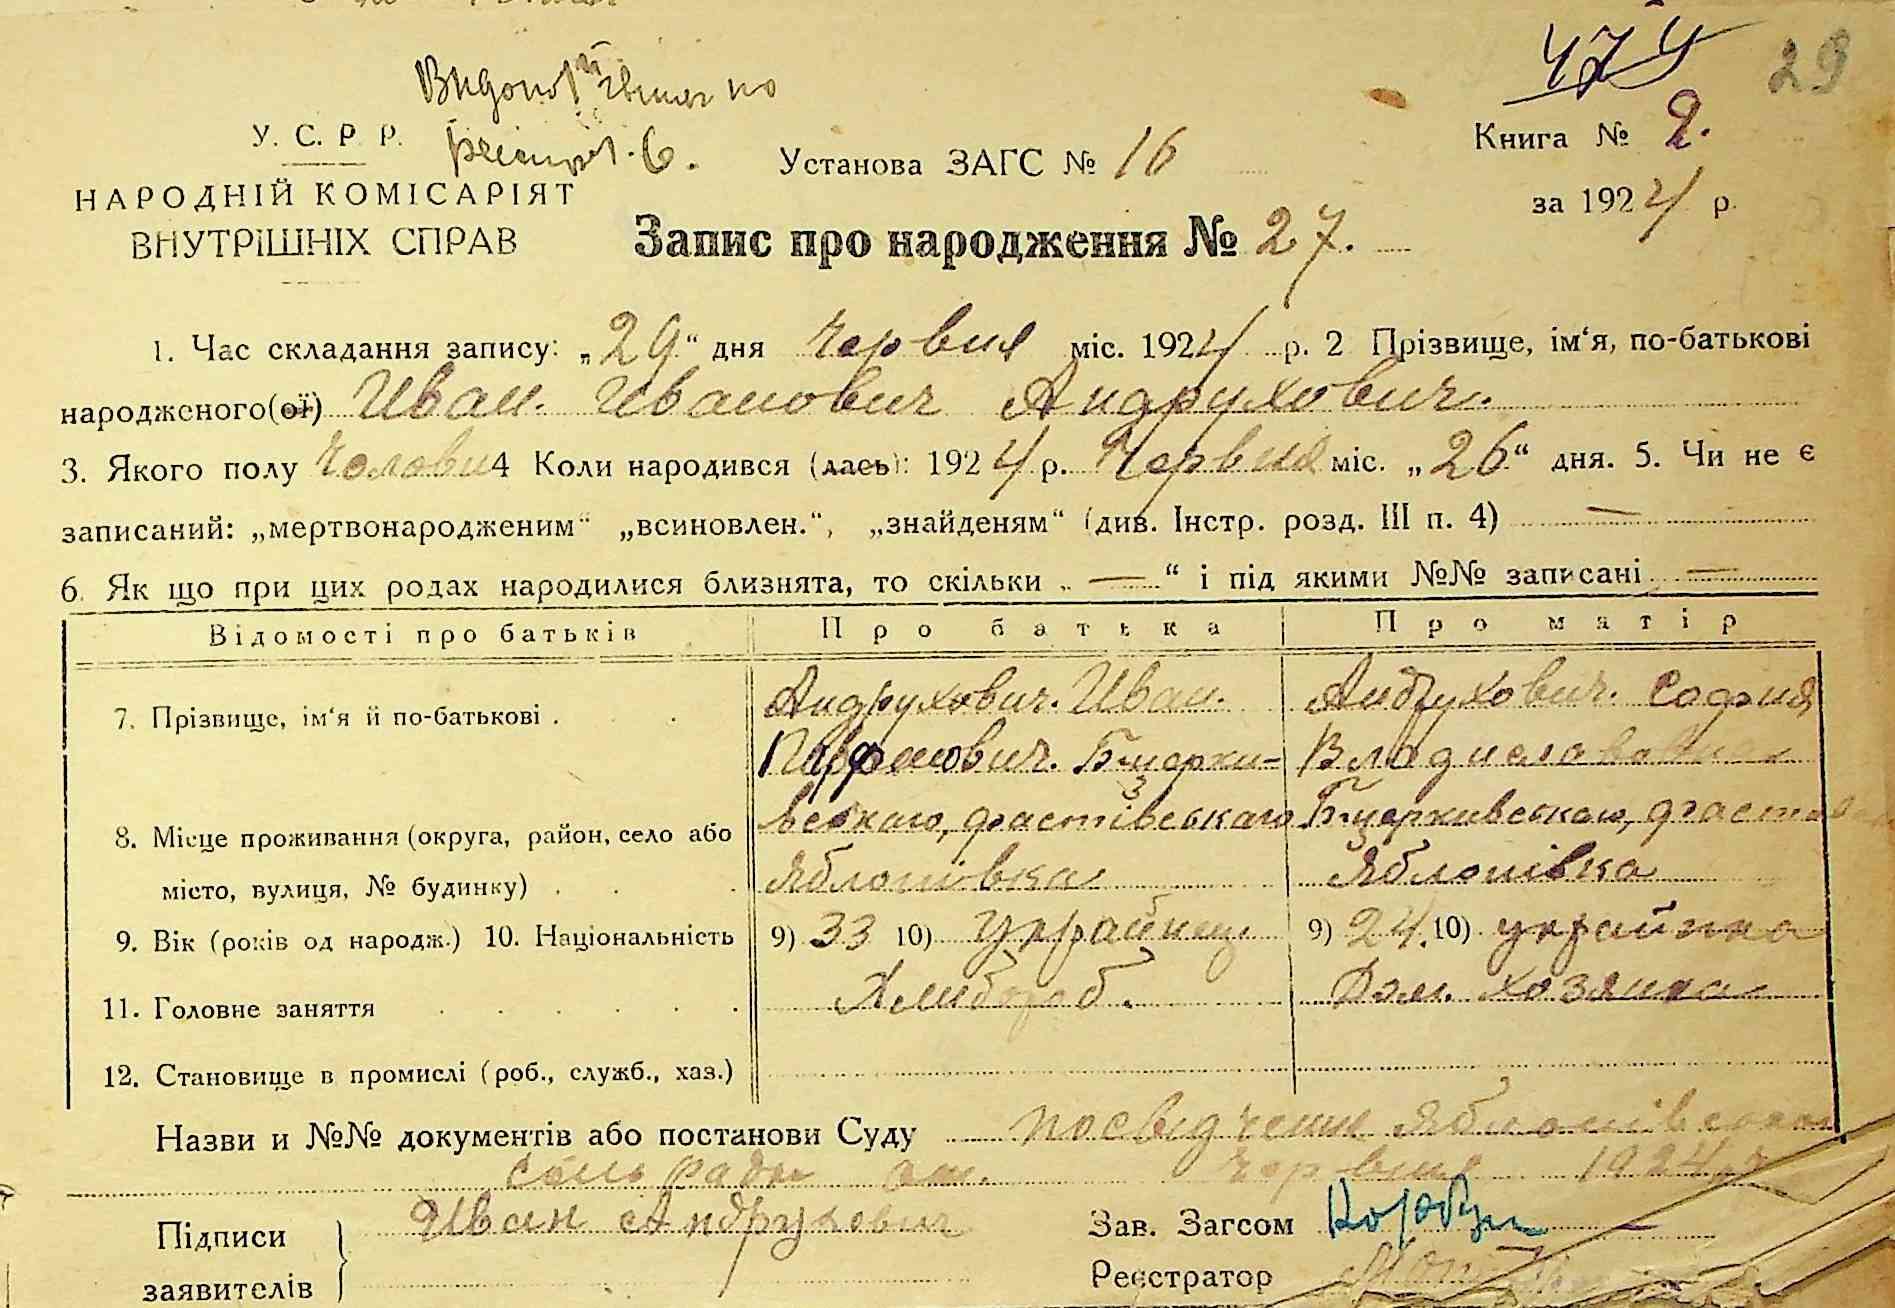 474 29
У. С. Р Р. Установа ЗАГС № 16 Книга № 2.
НАРОДНІЙ КОМІСАРІЯТ за 1924 р.
ВНУТРІШНІХ СПРАВ Запис про народження № 27.
1. Час складання запису: „29“ дня Червня міс. 1924 р. 2 Прізвище, ім‘я, по-батькові
народженого(ої) Иван. Иванович Андрухович.
3. Якого полу Чолови 4 Коли народився (лась): 1924 р. Червня міс. „26“ дня. 5. Чи не є
записаний: „мертвонародженим“ „всиновлен.“, „знайденям“ (див. Інстр. розд. III п. 4) —
6. Як що при цих родах народилися близнята, то скільки „—“ і під якими №№ записані —
Відомості про батьків Про батька Про матір
7. Прізвище, ім‘я й по-батькові . Андрухович. Иван. Андрухович. София
Парфенович. Бцерки- Владиславовна
8. Місце проживання (округа, район, село або вського, фастівського Бцерківського, фастов
місто, вулиця, № будинку) . Яблонівка Яблонівка
9. Вік (років од народж.) 10. Національність 9) 33 10) Українец 9) 24. 10) українка
11. Головне заняття Хлибороб. Дом. хозяйка
12. Становище в промислі (роб., служб., хаз.)
Назви и №№ документів або постанови Суду посвідчення Яблонівської
сіль ради от. червня 1924 р
Підписи Иван Андрухович Зав. Загсом
заявителів Реєстратор